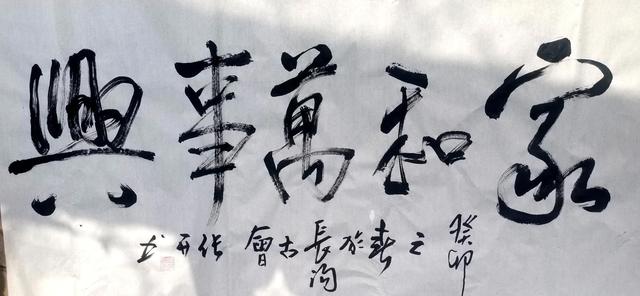 家和萬事興
癸卯之春於長沟古會張開书